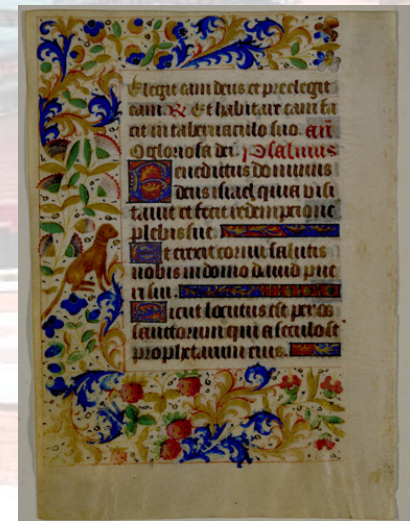 Elegit eam deus et preelegit
eam. R Et habitare eam fa
cit in tabernaculo suo. an
O gloriosa dei. Psalmus
Benedictus dominus
deus israel quia visi
tavit et fecit redemptione
plebis sue.
Et erexit cornu salutis
nobis in domo david pue
ri sui.
Sicut locutus est per os
sanctorum qui a seculo st
prophetarum eius.